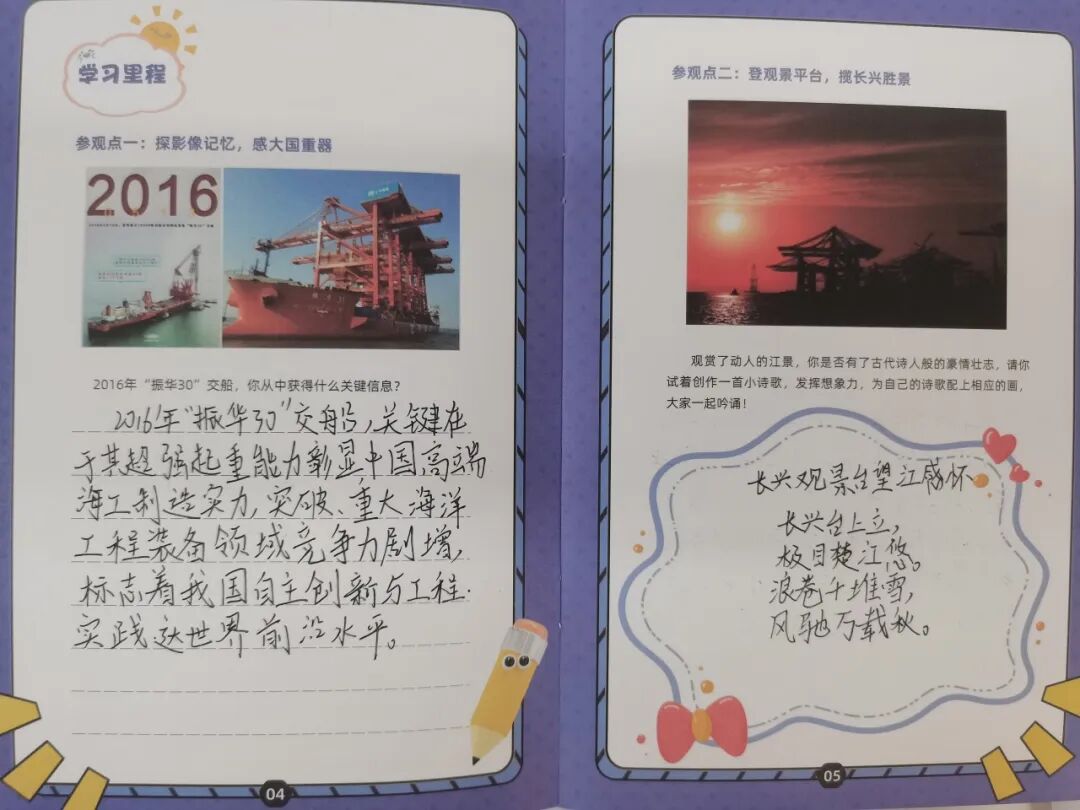 学习里程
参观点一：探影像记忆，感大国重器
2016
2016年“振华30”交船，你从中获得什么关键信息？
2016年“振华30”交船，关键在
于其超强起重能力彰显中国高端
海工制造实力，突破、重大海洋
工程装备领域竞争力剧增，
标志着我国自主创新与工程
实践达世界前沿水平。
04
参观点二：登观景平台，揽长兴胜景
观赏了动人的江景，你是否有了古代诗人般的豪情壮志，请你
试着创作一首小诗歌，发挥想象力，为自己的诗歌配上相应的画，
大家一起吟诵！
长兴观景台望江感怀
长兴台上立，
极目楚江悠。
浪卷千堆雪，
风驰万载秋。
05